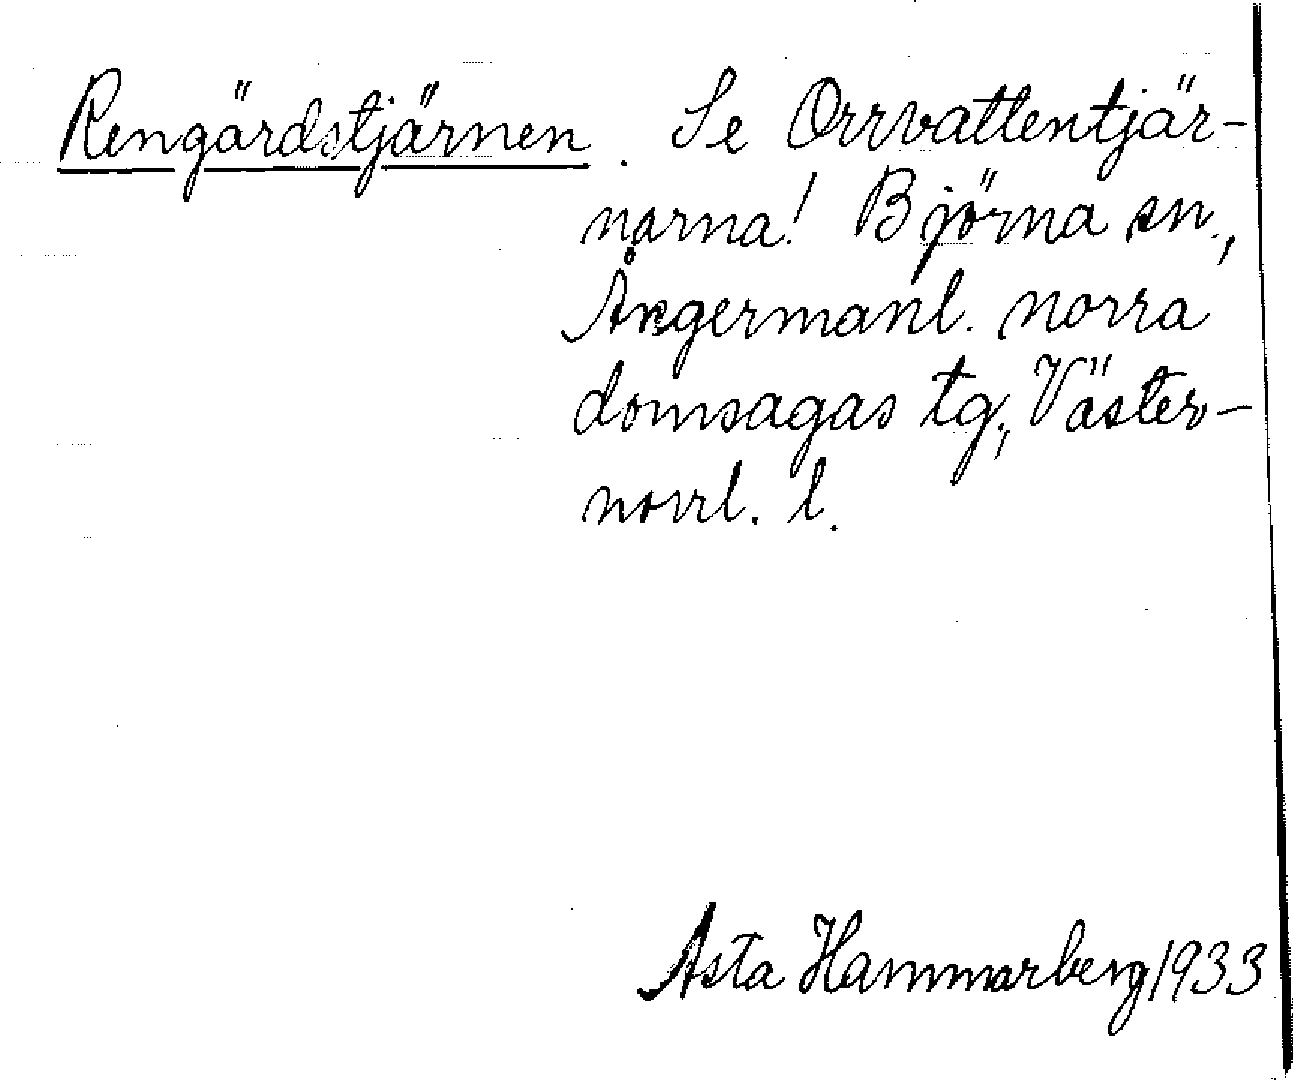 Rengärdstjärnen. Se Orrvattentjär-
narna! Björna sn.,
Ångermanl. norra
domsagas tg., Väster-
norrl. l.
Asta Hammarberg 1933